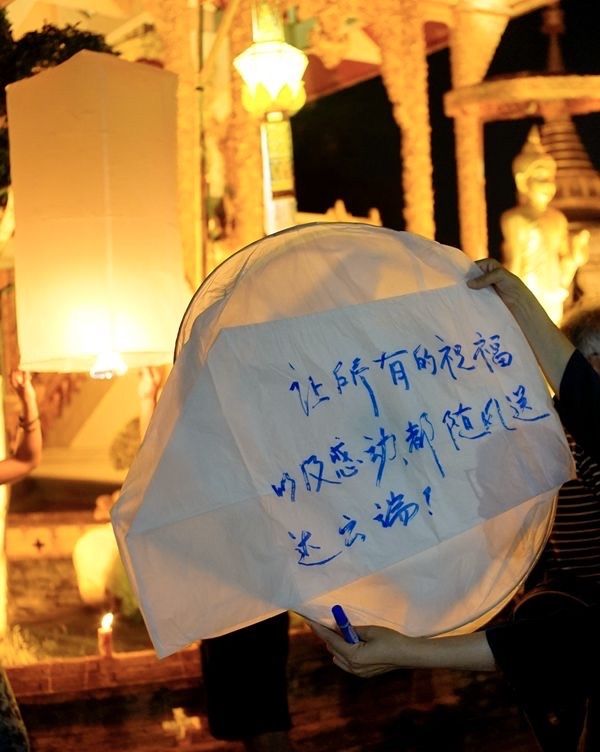 让所有的祝福
以及感动、都随风送
达云端！